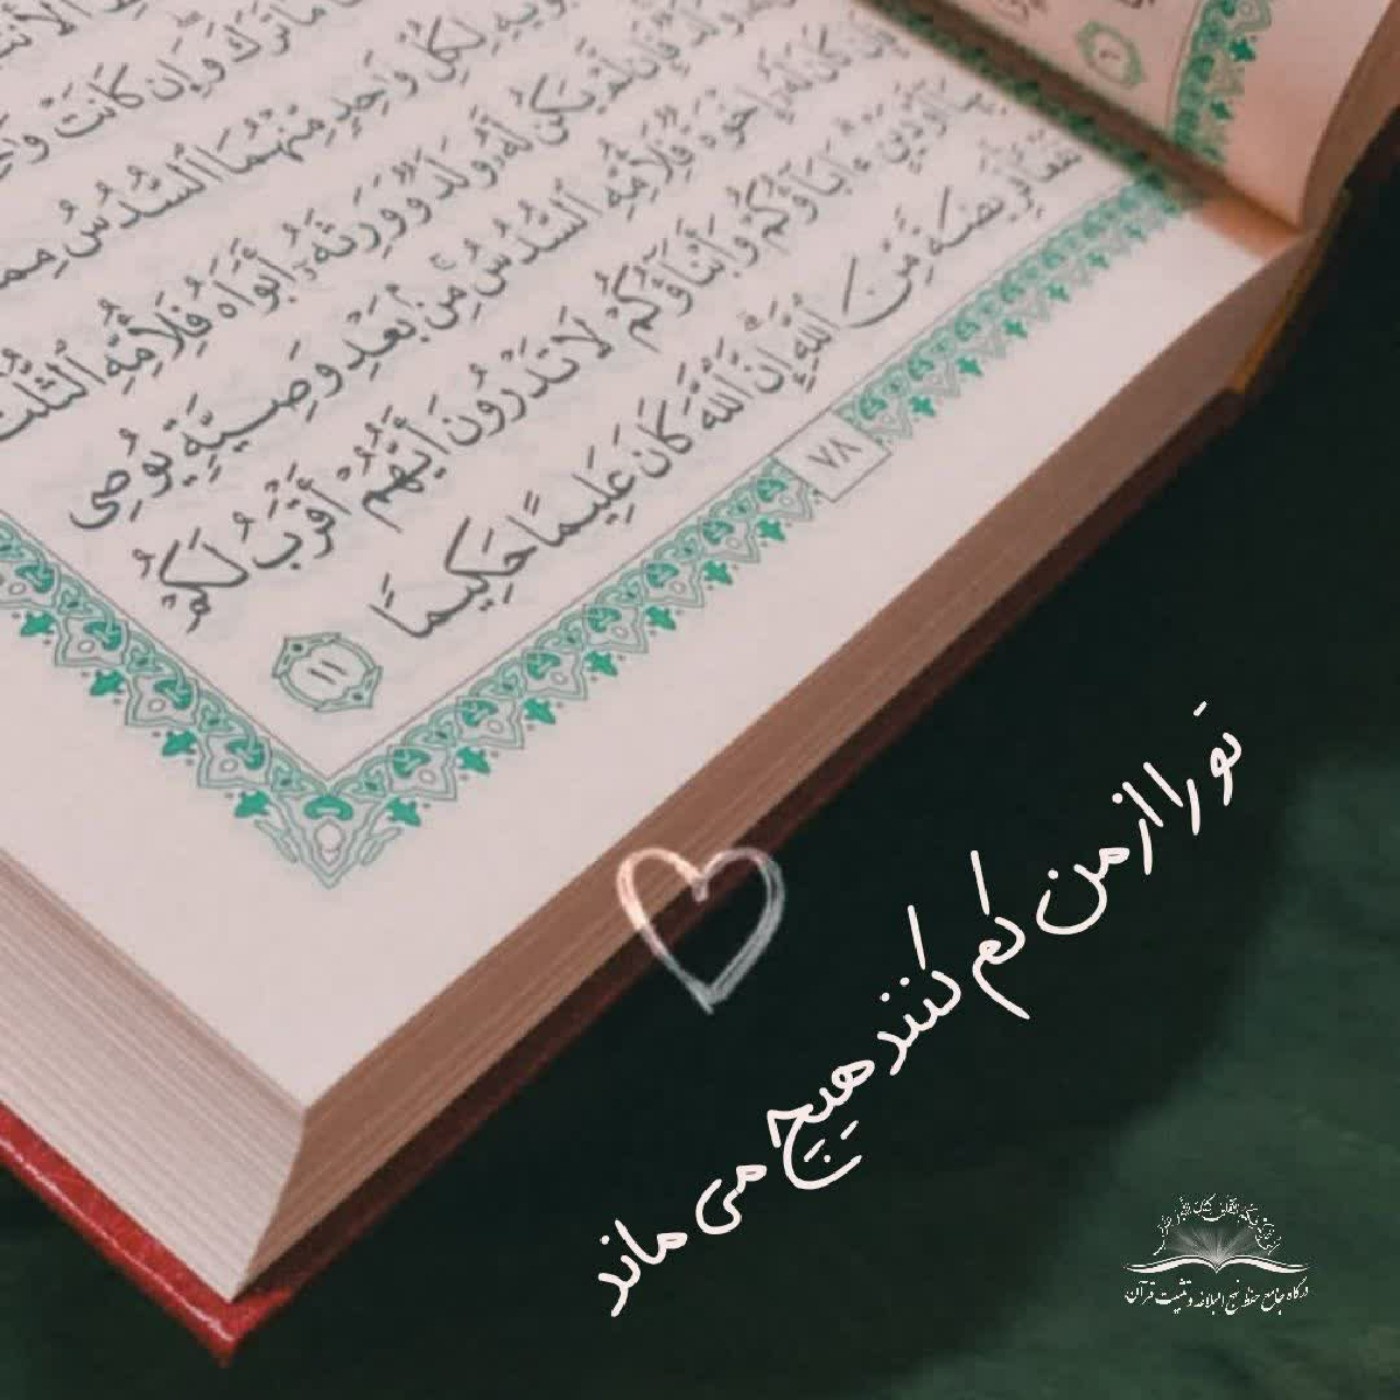 مَا تَرَكَ وَإِن كَانَتْ
لِكُلِّ وَٰحِدٍ مِّنْهُمَا ٱلسُّدُسُ مِمَّا
وَلَدٌ فَإِن لَّمْ يَكُن لَّهُۥ وَلَدٌ وَوَرِثَهُۥٓ أَبَوَاهُ فَلِأُمِّهِ ٱلثُّلُثُ
فَإِن كَانَ لَهُۥٓ إِخْوَةٌ فَلِأُمِّهِ ٱلسُّدُسُ مِنۢ بَعْدِ وَصِيَّةٍ يُوصِى
بِهَآ أَوْ دَيْنٍ ءَابَآؤُكُمْ وَأَبْنَآؤُكُمْ لَا تَدْرُونَ أَيُّهُمْ أَقْرَبُ لَكُمْ
نَفْعًا فَرِيضَةً مِّنَ ٱللَّهِ إِنَّ ٱللَّهَ كَانَ عَلِيمًا حَكِيمًا ١١
٧٨
تو را از من کم کنند هیچ می ماند
درگاه جامع حفظ نهج البلاغه و تثبیت قرآن